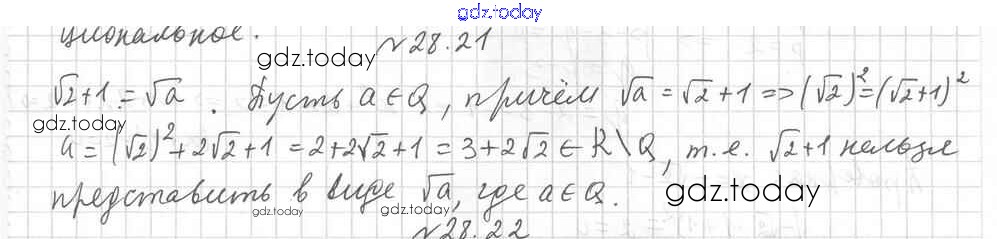 gdz.today
циональное.
gdz.today
№28.21
√2+1=√a. Пусть a∈Q, причём √a=√2+1=>(√2)²=(√2+1)²
gdz.today
a=(√2)²+2√2+1=2+2√2+1=3+2√2∈R\Q, т.е. √2+1 нельзя
представить в виде √a, где a∈Q.
gdz.today
gdz.today
gdz.today
№28.22